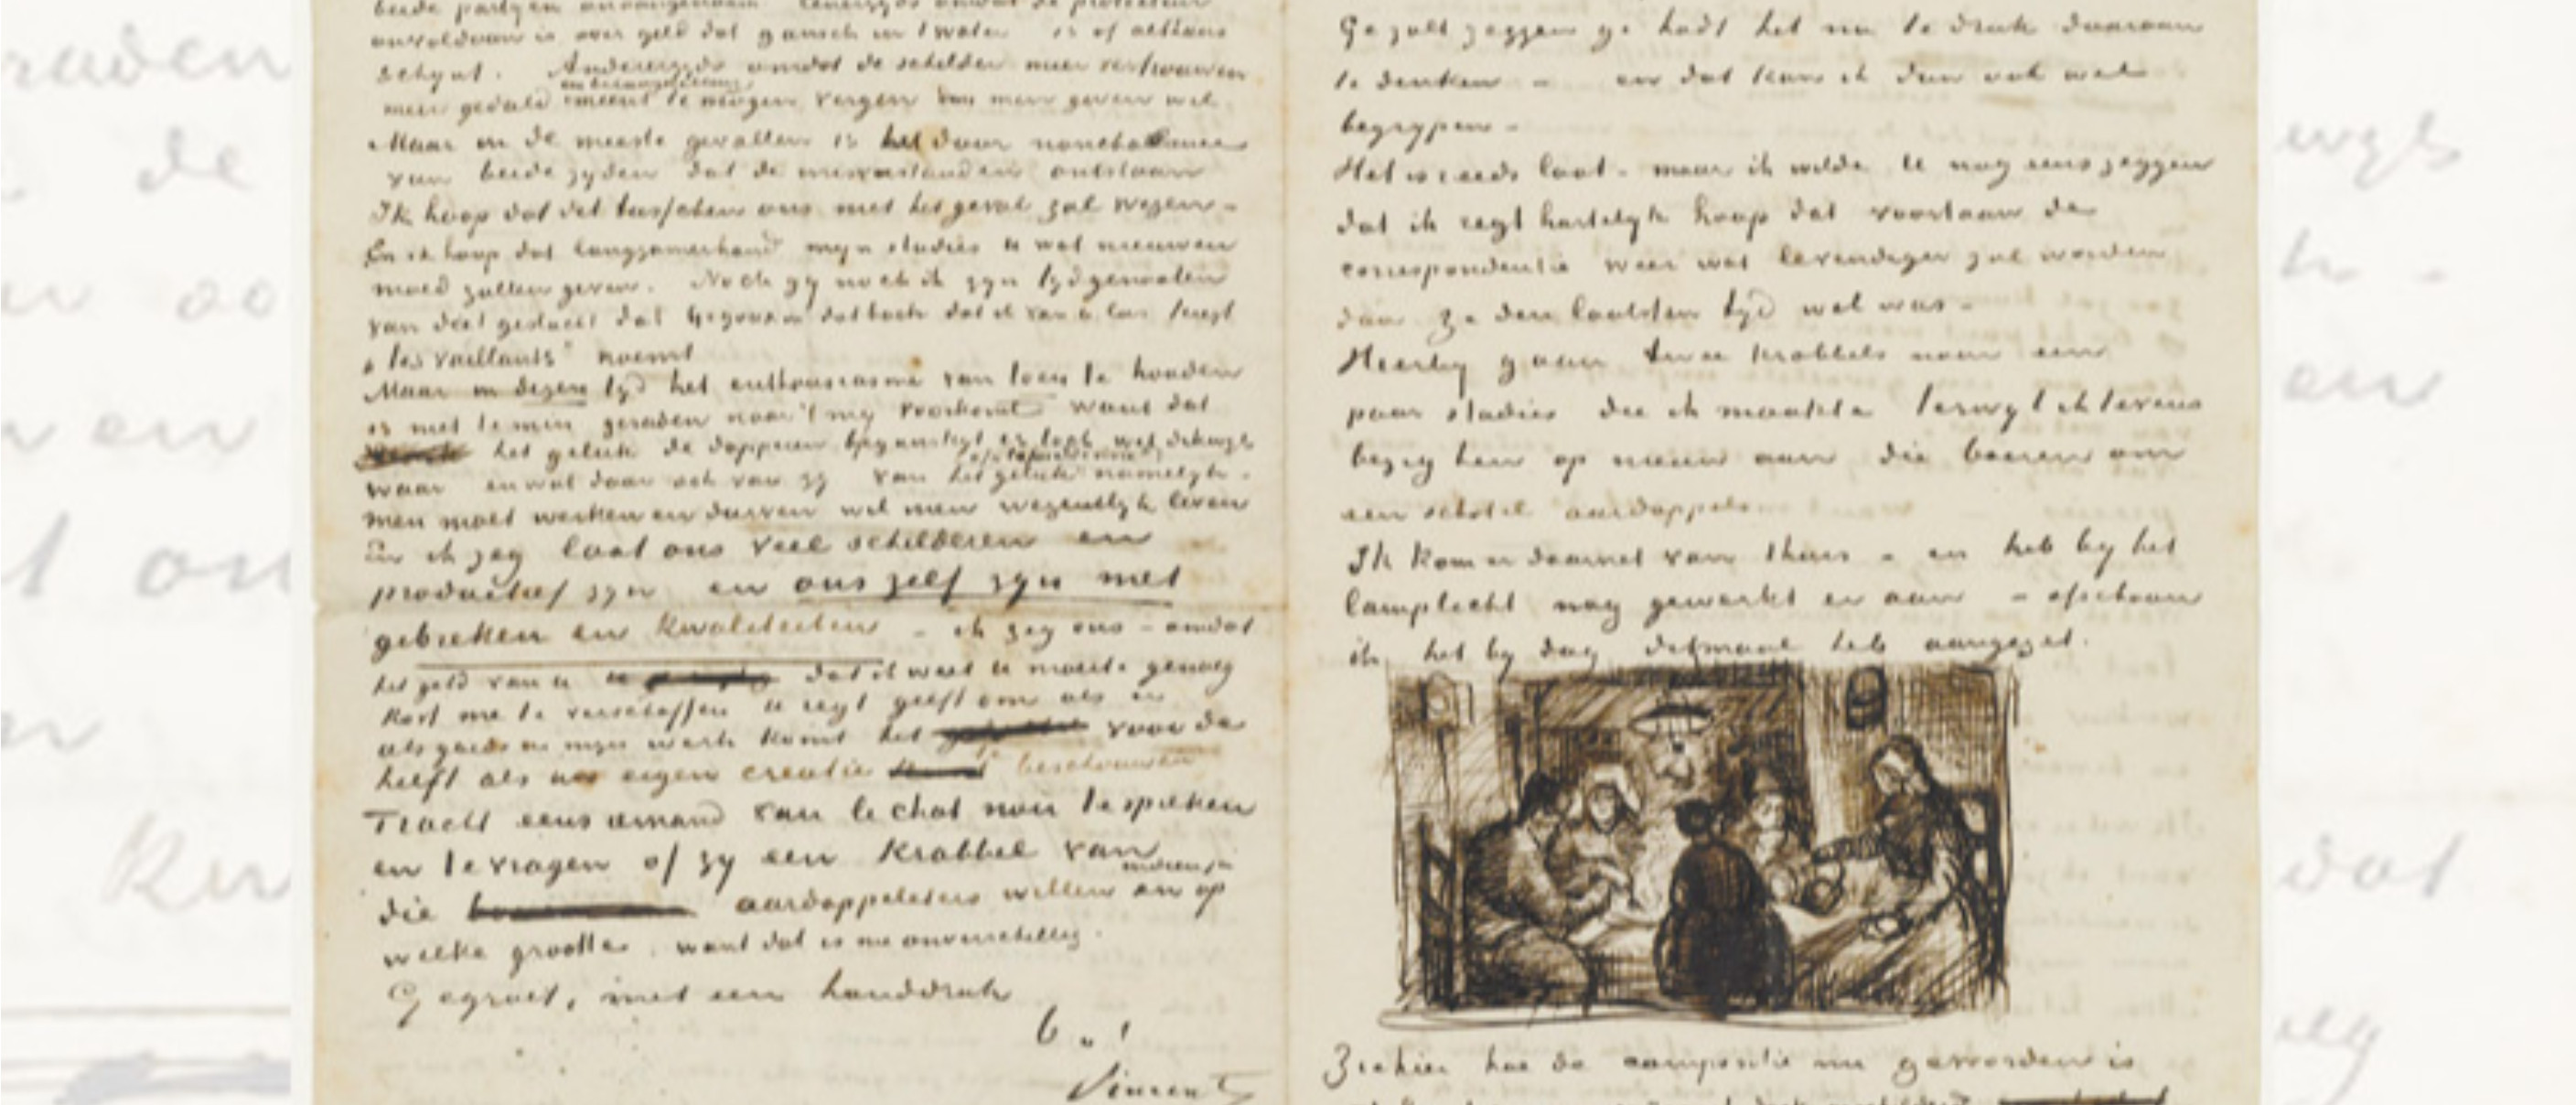 schynt. Anderzyds omdat de schilder meer vertrouwen
meer geduld meent te mogen vergen dan men geven wil.
Maar in de meeste gevallen is het door nonchalance
van beide zyden dat de misverstanden ontstaan
Ik hoop dat dit tusschen ons niet het geval zal wezen -
En ik hoop dat langzamerhand myn studies u wat nieuwen
moed zullen geven. Noch gy noch ik zyn tydgenooten
van dat geslacht dat
„les vaillants" noemt
Maar in dezen tyd het enthousiasme van toen te houden
is niet te min geraden naar 't my voorkomt want dat
het geluk de dapperen begunstigt is toch wel dikwyls
waar en wat daar ook van zy van het geluk namelyk -
men moet werken en durven wil men wezentlyk leven
En ik zeg laat ons veel schilderen en
productief zyn en ons zelf zyn met
gebreken en kwaliteiten - ik zeg ons - omdat
het geld van u dat ik weet u moeite genoeg
kost me te verschaffen u regt geeft om als er
iets goeds in myn werk komt het voor de
helft als uw eigen creatie te beschouwen
Tracht eens iemand van le chat noir te spreken
en te vragen of zy een krabbel van
die aardappeleters willen en op
welke grootte, want dat is me onverschillig.
Gegroet, met een handdruk
b. à t.
Vincent
Ge zult zeggen ge hadt het nu te druk daaraan
te denken - en dat kan ik dan ook wel
begrypen -
Het is reeds laat - maar ik wilde U nog eens zeggen
dat ik regt hartelyk hoop dat voortaan de
correspondentie weer wat levendiger zal worden
dan ze den laatsten tyd wel was -
Hierby gaan twee krabbels naar een
paar studies die ik maakte terwyl ik tevens
bezig ben op nieuw aan die boeren om
een schotel aardappels
Ik kom er daarnet van thuis - en heb by het
lamplicht nog gewerkt er aan - ofschoon
ik het by dag ditmaal heb aangezet.
Ziehier hoe de compositie nu geworden is